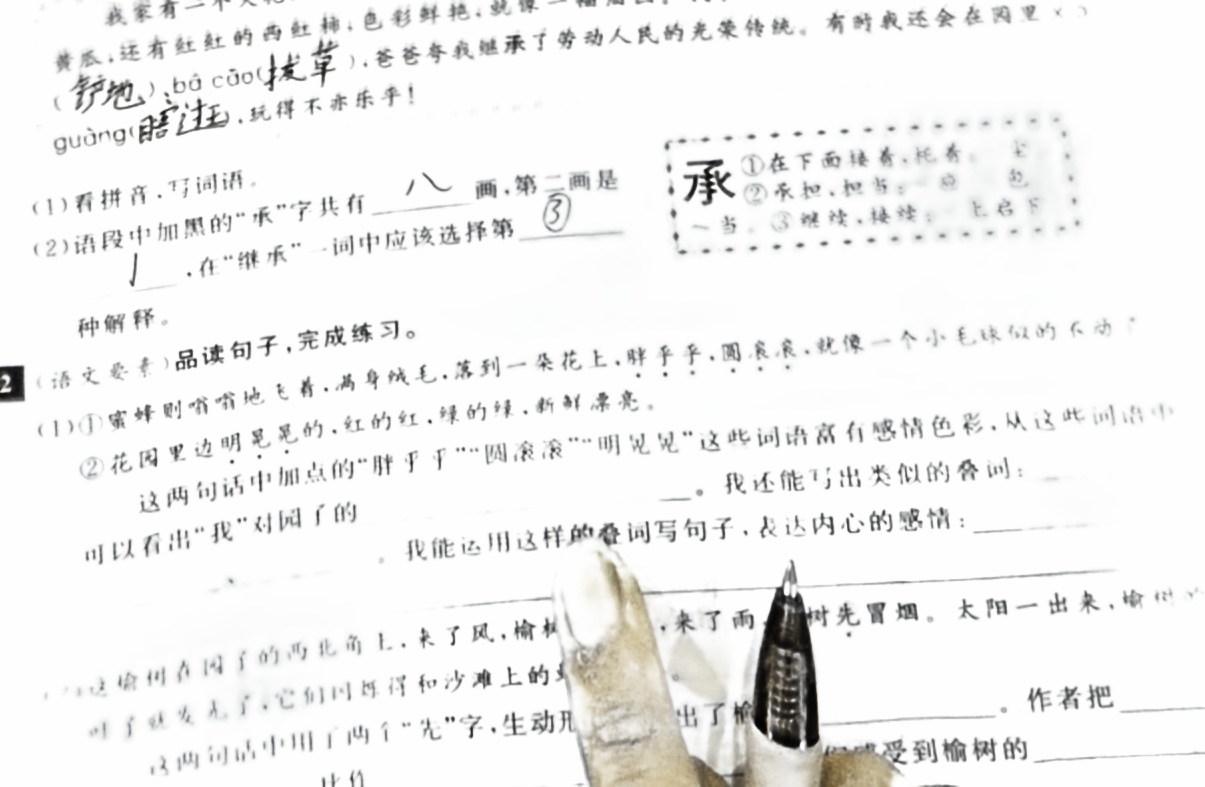 我家有一个大
黄瓜,还有红红的西红柿,色彩鲜艳,就像一幅
(铲地)、bá cǎo(拔草),爸爸夸我继承了劳动人民的光荣传统。有时我还会在园里
guàng(瞎逛),玩得不亦乐乎!
(1)看拼音,写词语。
(2)语段中加黑的“承”字共有 八 画,第二画是
亅 ,在“继承”一词中应该选择第 ③
种解释。
承 ①在下面接着,托着。
②承担,担当:
一当。③继续,接续:一上启下
2 (语文要素)品读句子,完成练习。
(1)①蜜蜂则嗡嗡地飞着,满身绒毛,落到一朵花上,胖乎乎,圆滚滚,就像一个小毛球似的不动了
②花园里边明晃晃的,红的红,绿的绿,新鲜漂亮。
这两句话中加点的“胖乎乎”“圆滚滚”“明晃晃”这些词语富有感情色彩,从这些词语中
可以看出“我”对园子的 。我还能写出类似的叠词:
。我能运用这样的叠词写句子,表达内心的感情:
这榆树在园子的西北角上,来了风,榆树 ,来了雨, 树先冒烟。太阳一出来,榆树的
叶子就发光了,它们闪烁得和沙滩上的
这两句话中用了两个“先”字,生动形 出了榆 。作者把
比作 感受到榆树的